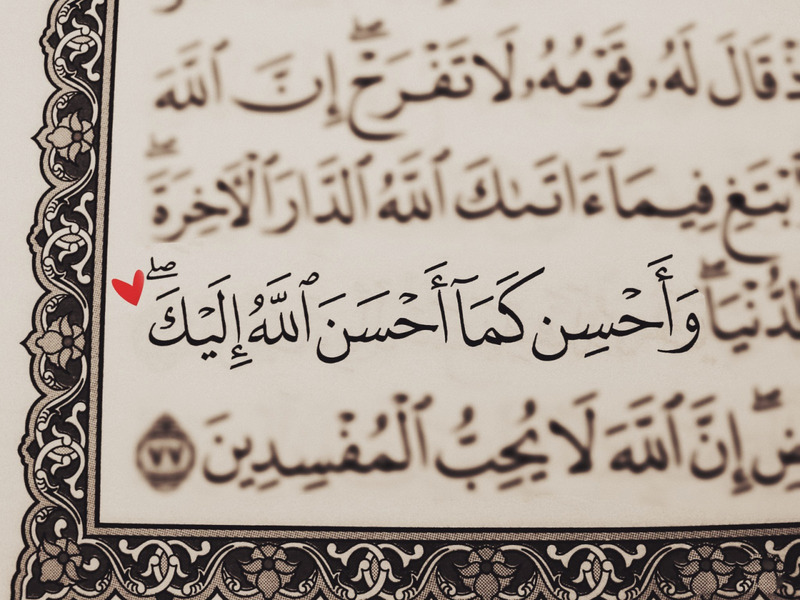 قَالَ لَهُۥ قَوْمُهُۥ لَا تَفْرَحْ ۖ إِنَّ ٱللَّهَ
ٱبْتَغِ فِيمَآ ءَاتَىٰكَ ٱللَّهُ ٱلدَّارَ ٱلْءَاخِرَةَ ۖ
ٱلدُّنْيَا ۖ وَأَحْسِن كَمَآ أَحْسَنَ ٱللَّهُ إِلَيْكَ ۖ
إِنَّ ٱللَّهَ لَا يُحِبُّ ٱلْمُفْسِدِينَ ٧٧